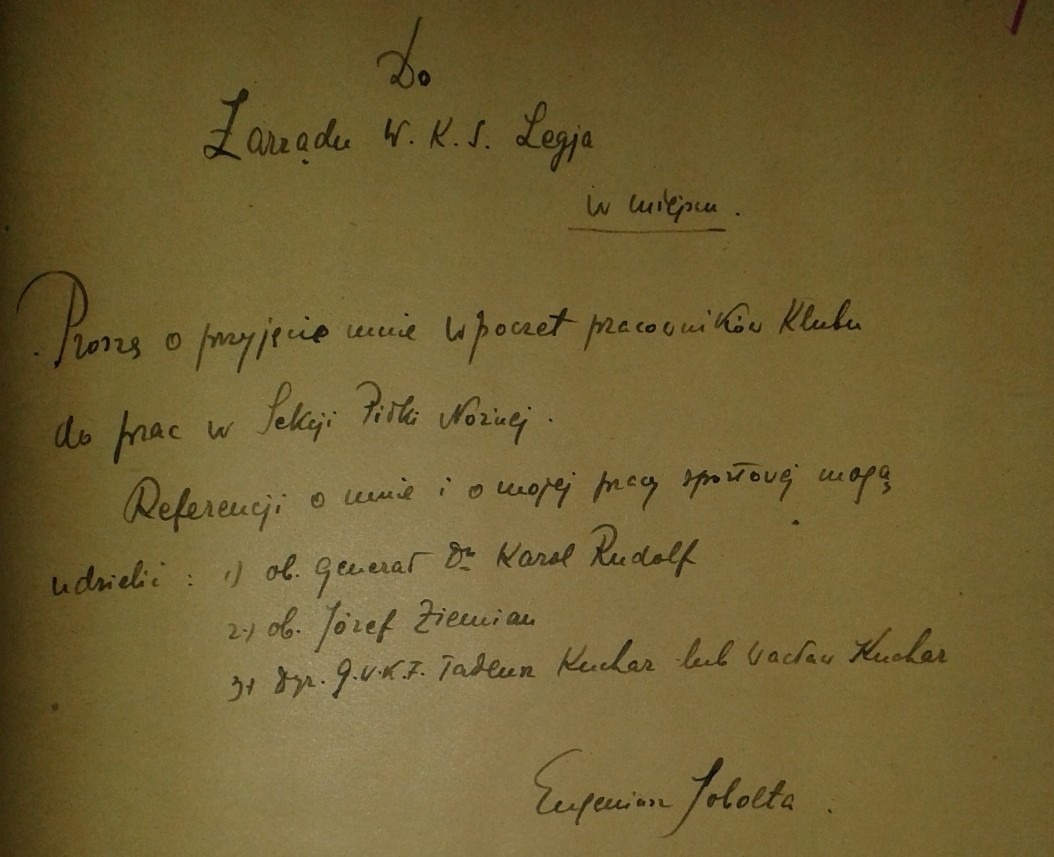 Do
Zarządu W. K. S. Legja
w miejscu.
Proszę o przyjęcie mnie w poczet pracowników Klubu
do prac w Sekcji Piłki Nożnej.
Referencji o mnie i o mojej pracy sportowej mogą
udzielić : 1) ob. Generał Dr Karol Rudolf
2.) ob. Józef Ziemian
3) Dyr. G.U.K.F. Tadeusz Kuchar lub Wacław Kuchar
Eugeniusz Sobolta.